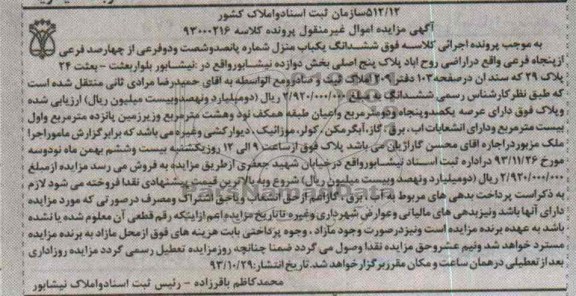 ۵۱۲/۱۲سازمان ثبت اسنادواملاک کشور
آگهی مزایده اموال غیرمنقول پرونده کلاسه ۹۳۰۰۰۲۱۶
به موجب پرونده اجرائی کلاسه فوق ششدانگ یکباب منزل شماره پانصدوشصت ودوفرعی از چهارصد فرعی
ازپنجاه فرعی واقع دراراضی روح اباد پلاک پنج اصلی بخش دوازده نیشابورواقع در:نیشابور بلواربعثت - بعثت ۲۴
پلاک ۲۹ که سند ان درصفحه۱۰۳ دفتر۲۰۹ املاک ثبت وصادرومع الواسطه به اقای حمیدرضا مرادی ثانی منتقل شده است
که طبق نظرکارشناس رسمی ششدانگ به مبلغ ۲/۹۲۰/۰۰۰/۰۰۰ ریال (دومیلیاردونهصدوبیست میلیون ریال) ارزیابی شده
وپلاک فوق دارای عرصه یکصدوپنجاه ودومترمربع واعیان طبقه همکف نود وهشت مترمربع وزیرزمین پانزده مترمربع واول
بیست مترمربع ودارای انشعابات اب، برق، گاز،آبگرمکن، کولر، موزائیک، دیوارکشی وغیره می باشد که برابرگزارش ماموراجرا
ملک مزبوردراجاره اقای محسن گازاریان می باشد پلاک فوق ازساعت ۹ الی ۱۲ روزیکشنبه بیست وششم بهمن ماه نودوسه
مورخ ۹۳/۱۱/۲۶ دراداره ثبت اسناد نیشابورواقع درخیابان شهید جعفری ازطریق مزایده به فروش می رسد مزایده ازمبلغ
۲/۹۲۰/۰۰۰/۰۰۰ ریال (دومیلیاردو نهصد وبیست میلیون ریال) شروع وبه بالاترین قیمت پیشنهادی نقدا فروخته می شود لازم
به ذکراست پرداخت بدهی های مربوط به آب، برق، گازاعم ازحق انشعاب ویاحق اشتراک ومصرف درصورتی که مورد مزایده
دارای آنها باشد ونیزبدهی های مالیاتی وعوارض شهرداری وغیره تا تاریخ مزایده اعم ازاینکه رقم قطعی آن معلوم شده یا نشده
باشد به عهده برنده مزایده است ونیزدرصورت وجود مازاد ، وجوه پرداختی بابت هزینه های فوق ازمحل مازاد به برنده مزایده
مسترد خواهد شد ونیم عشروحق مزایده نقدا وصول می گردد ضمنا چنانچه روزمزایده تعطیل رسمی گردد مزایده روزاداری
بعد از تعطیلی درهمان ساعت و مکان مقرربرگزارخواهد شد. تاریخ انتشار:۹۳/۱۰/۲۹
محمدکاظم باقرزاده - رئیس ثبت اسنادواملاک نیشابور